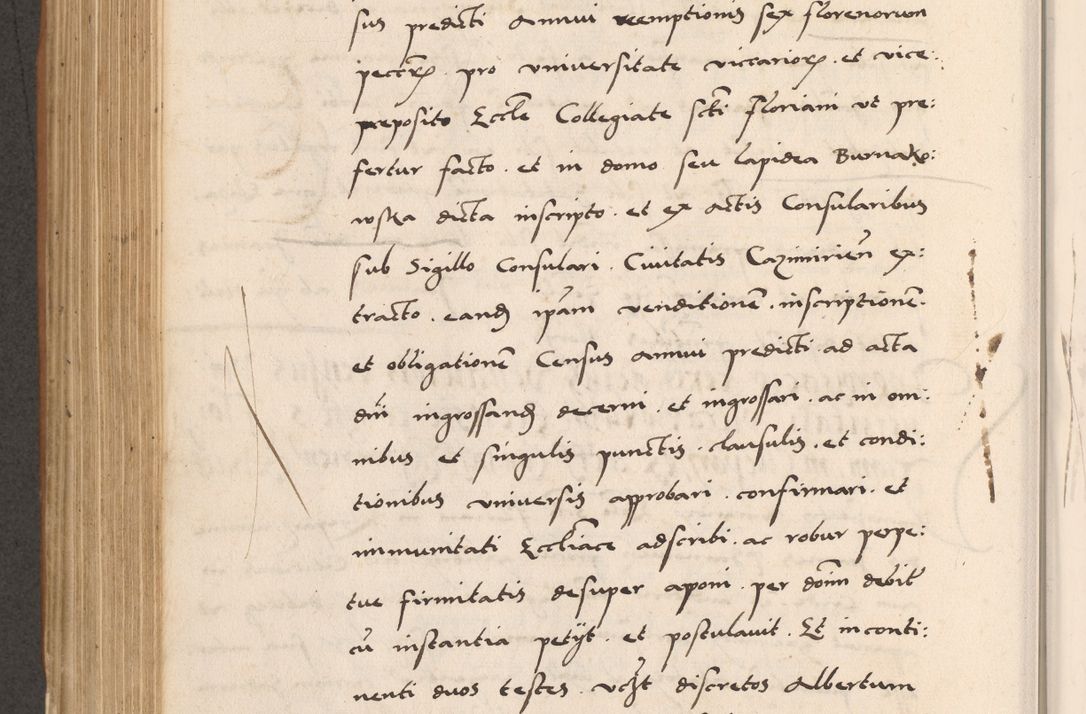 sus predicti annui reemptionis sex florenorum
peccūƺ pro universitate viccarioƺ et vice:
preposito Eccle Collegiate scti floriani ut pre:
fertur facto . et in domo seu lapidea Burnako:
wska dicta inscripto . et ex actis Consularibus
sub Sigillo Consulari . Civitatis Cazimirien̄ ex:
tracto . eand̄ ip̄am venditionem̄ . inscriptionem̄ .
et obligationem̄ Census annui predicti ad acta
dn̄i ingrossand̄ decerni . et ingrossari . ac in om̄:
nibus et singulis punctis . clausulis . et condi:
tionibus universis approbari . confirmari . et
immunitati Eccliacē adscribi . ac robur perpe:
tue firmitatis desuper apponi . per dom̄ debit̄
cū instantia petijt . et postulavit . Et inconti:
nenti duos testes . vczt discretos Albertum